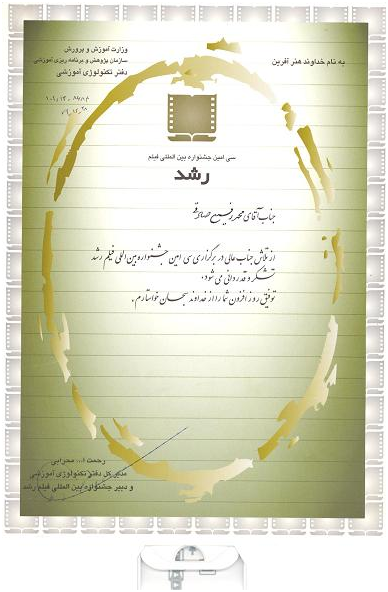 به نام خداوند هنر آفرین
وزارت آموزش و پرورش
سازمان پژوهش و برنامه ریزی آموزشی
دفتر تکنولوژی آموزشی
سی امین جشنواره بین المللی فیلم
رشد
جناب آقای محمد رفیع
از تلاش جناب عالی در برگزاری سی امین جشنواره بین المللی فیلم رشد
تشکر و قدردانی می شود.
توفیق روز افزون شما را از خداوند سبحان خواستارم.
رحمت ا... محرابی
مدیر کل دفتر تکنولوژی آموزشی
و دبیر جشنواره بین المللی فیلم رشد